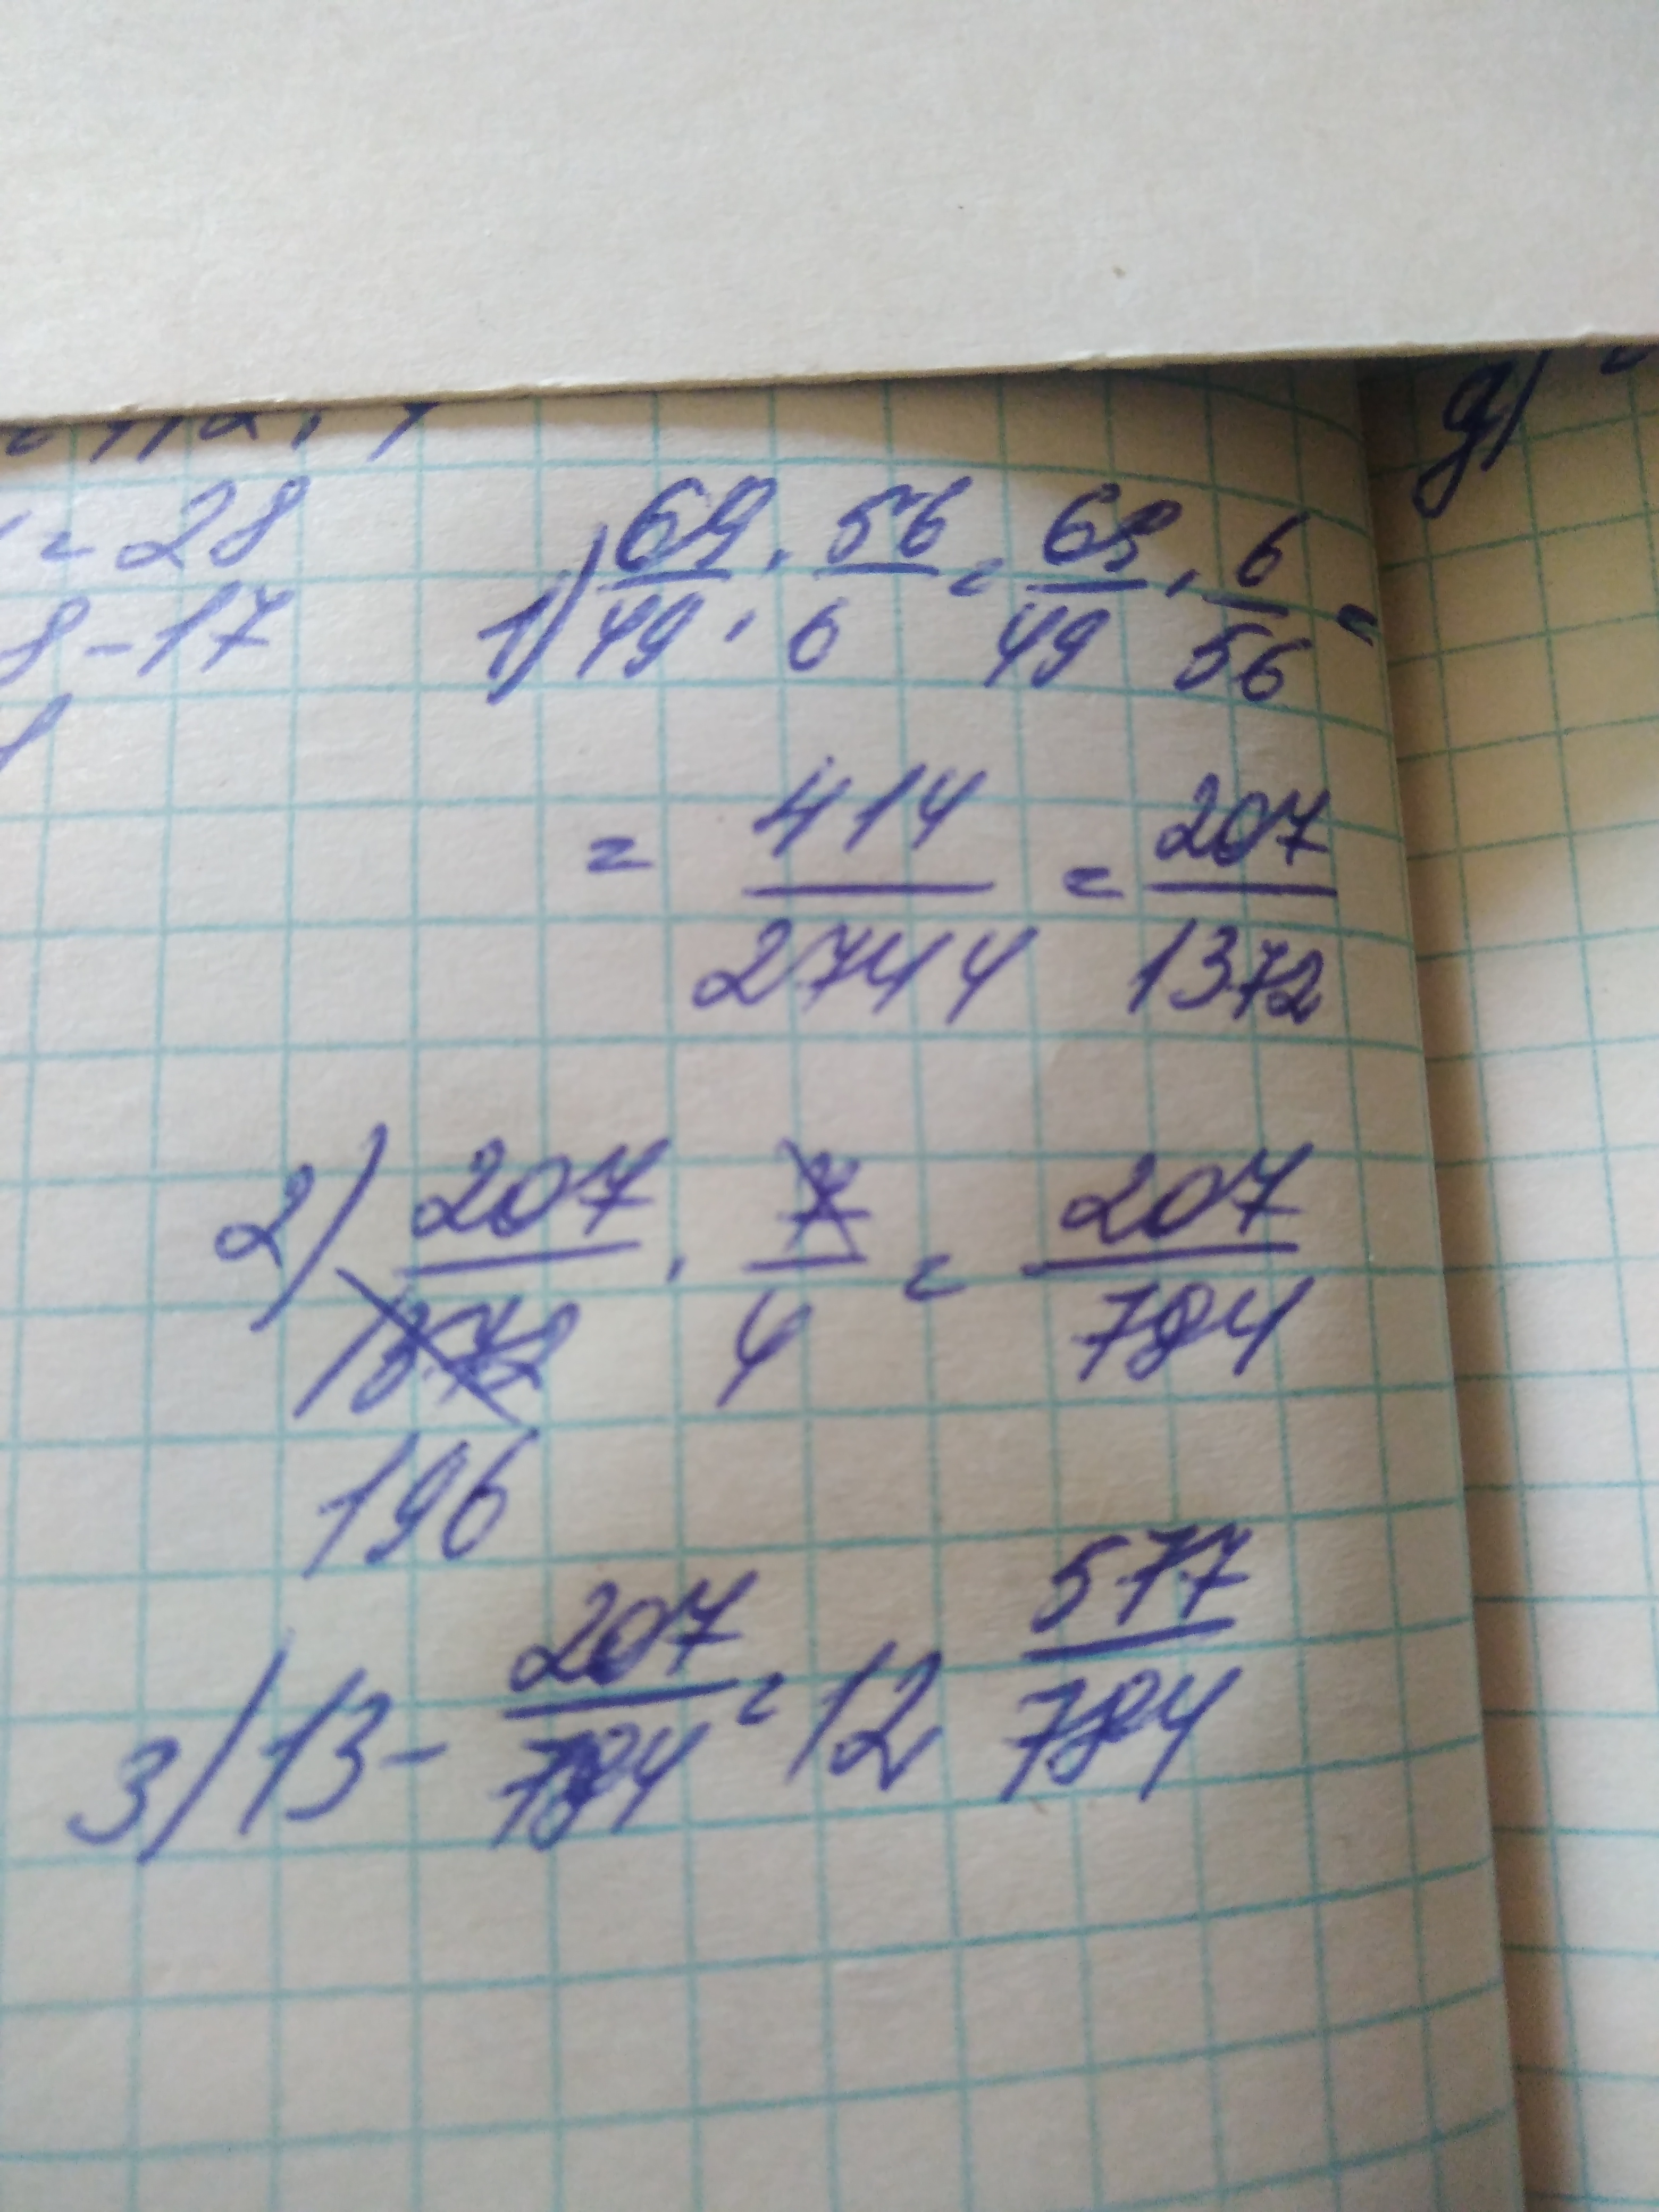 = 28
8 - 17
1) 69/49 : 56/6 = 69/49 · 6/56 =
= 414/2744 = 207/1372
2) 207/1372 · 7/4 = 207/784
196
3) 13 - 207/784 = 12 577/784
g)